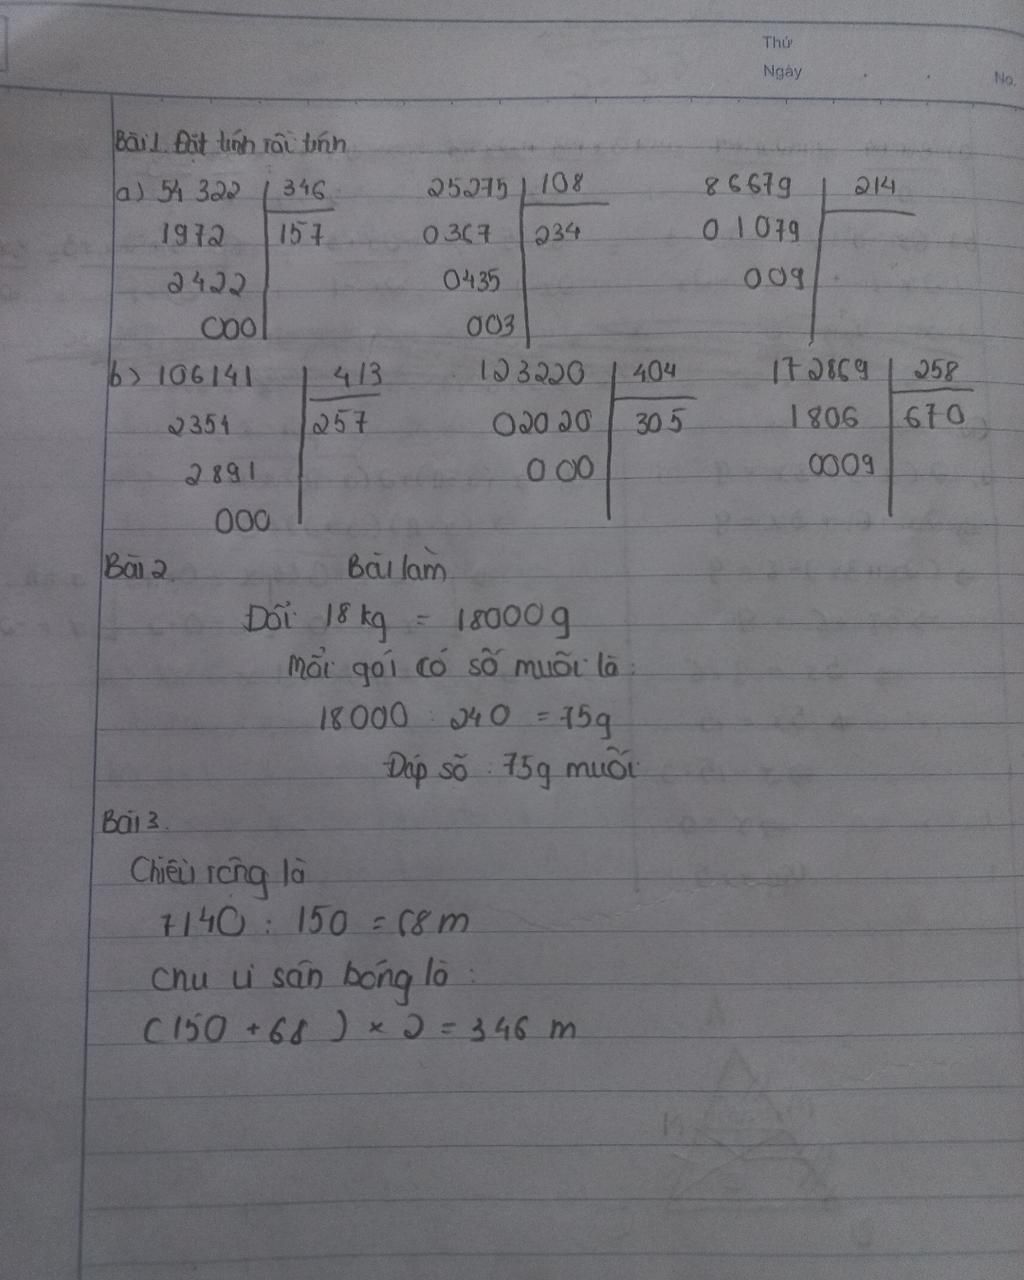 Thứ
Ngày
No.
Bài 1. Đặt tính rồi tính
a) 54 322 346 25275 108 86679 214
1972 157 0367 234 01079
2422 0435 009
000 003
b) 106141 413 123220 404 172869 258
2354 257 02020 305 1806 670
2891 000 0009
000
Bài 2. Bài làm
Đổi 18 kg = 18000g
Mỗi gói có số muối là:
18000 : 240 = 75g
Đáp số : 75g muối
Bài 3.
Chiều rộng là
7140 : 150 = 68m
Chu vi sân bóng là :
(150 + 68) × 2 = 346 m